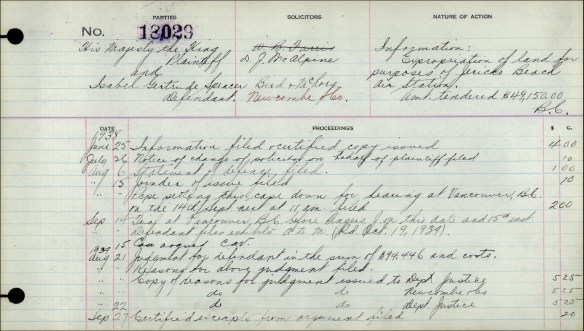 PARTIES SOLICITORS NATURE OF ACTION
No. 18029
His Majesty the King Information:
Plaintiff D. J. McAlpine Expropriation of land for
and purposes of Jericho Beach
Isabel Gertrude Spencer Bird & Air Station.
Defendant. Newcombe & Co. Amt. tendered $49,150.00
B.C.
DATE PROCEEDINGS $ C.
1938
June 25 Information filed & certified copy issued 4 00
July 26 Notice of change of solicitor on behalf of plaintiff filed 10
Aug 6 Statement of Defence filed. 1 00
" 15 Joinder of issue filed 10
" " setting this case down for hearing at Vancouver, B.C.
on the 14th Sept. next at 11 am. filed 2 00
Sep 14 Trial at Vancouver, B.C. before J. on this date and 15th inst.
Defendant files exhibits A to M. (Rd. Oct. 19, 1939)
" 15 Case argued C.A.V.
1939
Aug 21 Judgment for defendant in the sum of $94,446 and costs.
" " Reasons for above judgment filed.
" " Copy of reasons for judgment issued to Dept Justice 5 25
" " do do Newcombe & Co 5 25
" 22 do do Dept Justice 5 25
Sep 27 Certified excerpts from argument filed 20